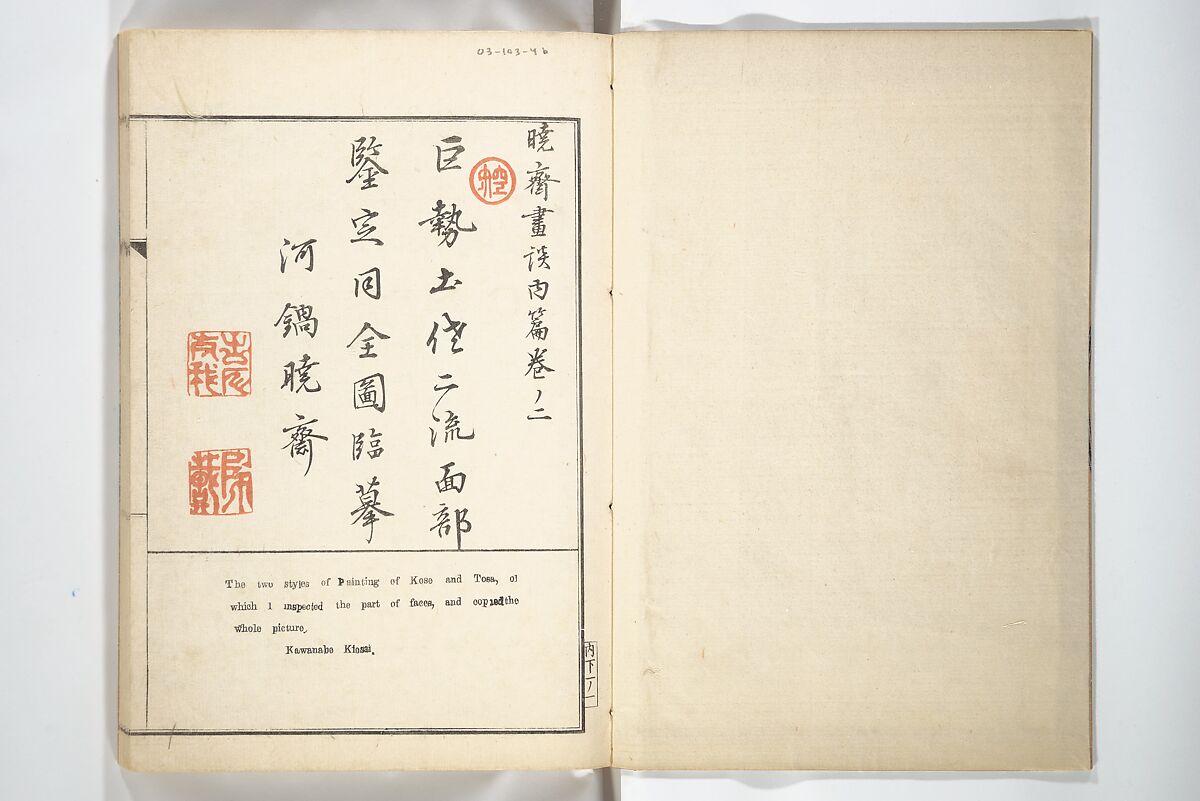 03-103-4b
暁齋畫談内篇巻ノ二
巨勢土佐二流面部
鑒定同全圖臨摹
河鍋暁齋
The two styles of Painting of Kose and Tosa, of
which I inspected the part of faces, and copied the
whole picture.
Kawanabe Kiosai.
内下一ノ一